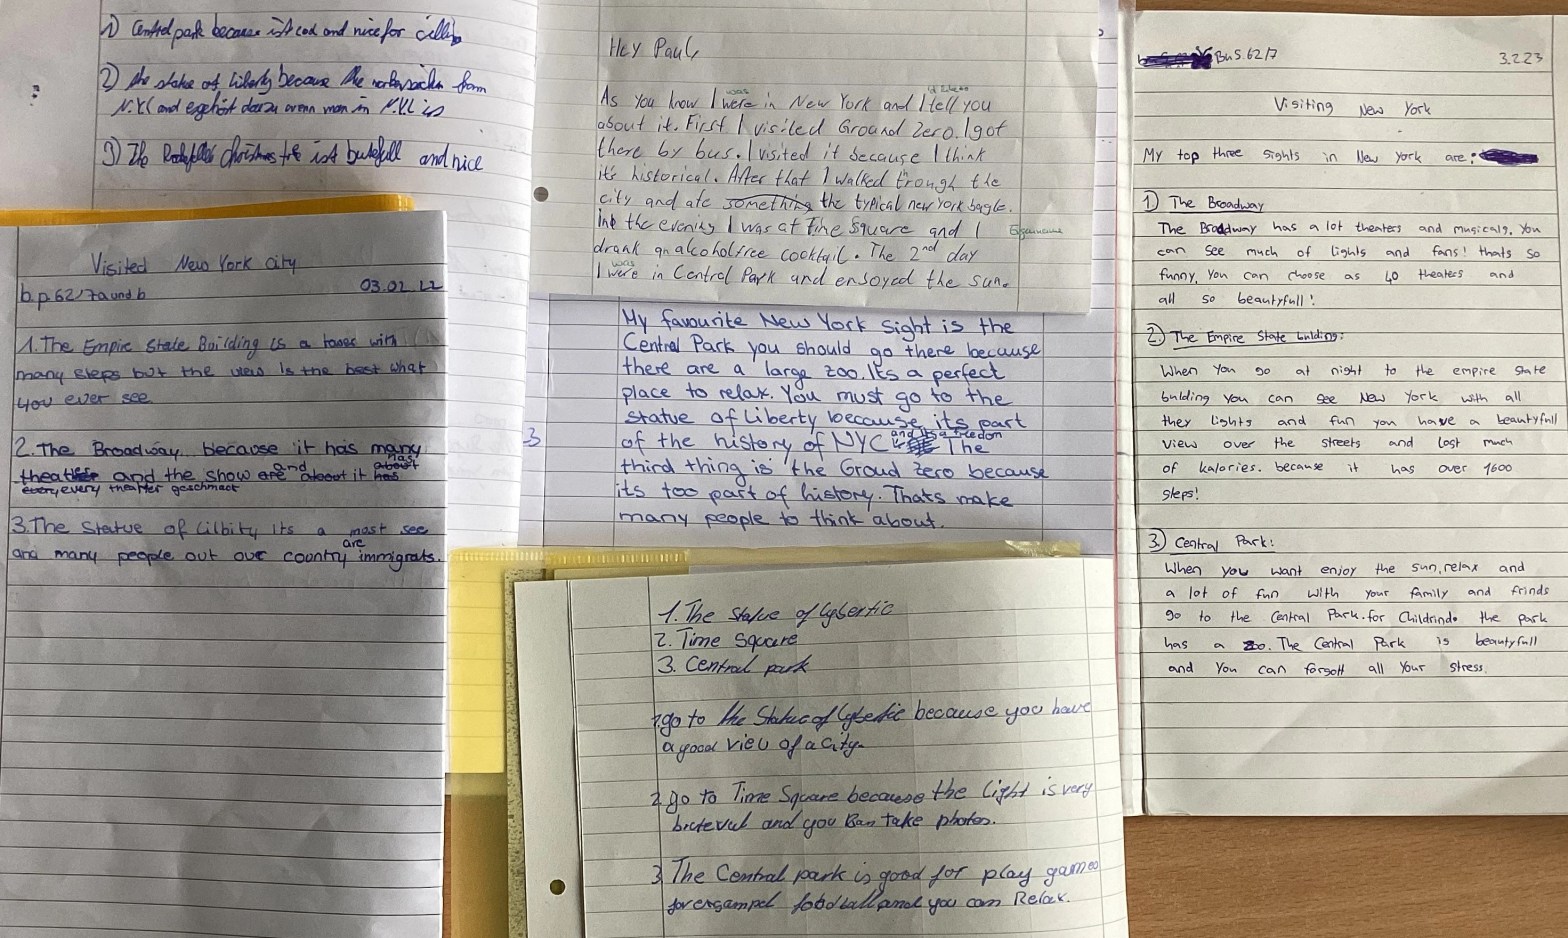 1) Central park because ist cool and nice for
2) the statue of liberty because the from
N.Y.C and egehört dazu wenn man in N.Y.C is
3) The ist butefull and nice
Visited New York City
b.p.62/7a und b 03.02
1. The Empire State Building is a with
many steps but the view is the best what
you ever see
2. The Broadway because it has many
and the show and it has
every every theatter geschmact
3. The Statue of Lilbity its a mast see
and many people out our country are immigrats.
Hey Paul,
As you know I was in New York and I tell you
about it. First I visited Ground Zero. I got
there by bus. I visited it because I think
its historical. After that I walked trough the
city and ate the typical new york bagle.
the evening I was at Time Square and I
drank an alcoholfree cocktail. The 2nd day
I was in Central Park and ensoyed the sun.
My favourite New York sight is the
Central Park you should go there because
there are a large zoo. Its a perfect
place to relax. You must go to the
statue of Liberty because its part
3 of the history of NYC and its a freedon The
third thing is the Groud Zero because
its too part of history. Thats make
many people to think about.
1. The Statue of Lybertic
2. Time Square
3. Central park
1 go to the Statue of Lybertic because you have
a good view of a city.
2 go to Time Square because the light is very
and you can take photos.
3 The Central park is good for play games
for exsampel and you can Relax.
BuS.62/7 3.2.23
Visiting New York
My top three sights in New York are:
1) The Broadway
The Broadway has a lot theaters and musicals. You
can see much of lights and fans! thats so
funny, you can choose as 40 theaters and
all so beautyfull!
2.) The Empire State bulding:
When you go at night to the empire state
bulding you can see New York with all
they lights and fun you have a beautyfull
view over the streets and lost much
of kalories. because it has over 1600
steps!
3.) Central Park:
When you want enjoy the sun, relax and
a lot of fun with your family and frinds
go to the Central Park. for the park
has a zoo. The Central Park is beautyfull
and you can forgott all your stress.